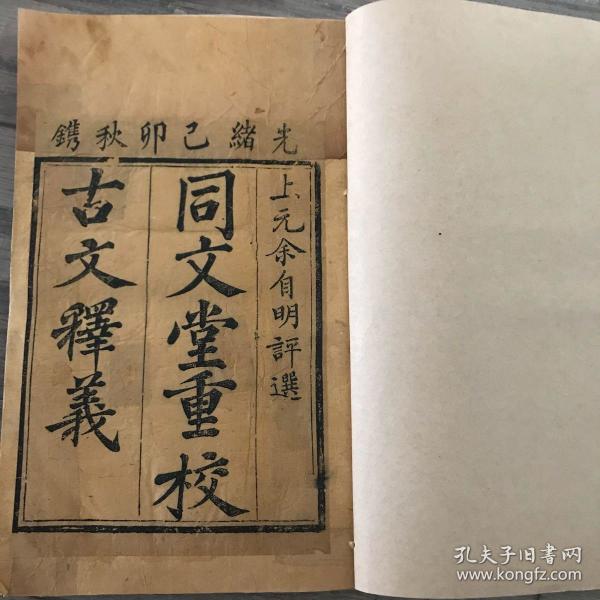 光緒己卯秋鐫
上元余自明評選
同文堂重校
古文釋義
孔夫子旧书网
www.kongfz.com